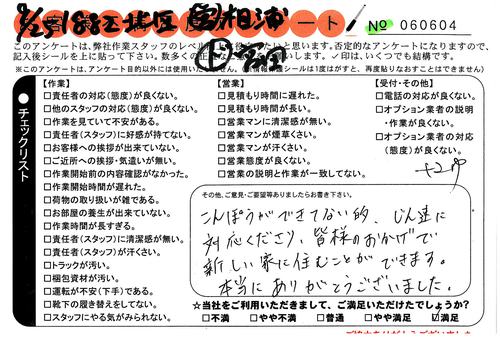 ート
No 060604
このアンケートは、弊社作業スタッフのレベル
たいと思います。否定的なアンケートになりますので、
記入後シールを上に貼って下さい。数多くの正
します。✓印は、いくつでも結構です。
※このアンケートは、アンケート目的以外には使用いたし
シールは1度はがすと、再度貼りなおすことはできません)
チェックリスト
【作業】
□責任者の対応(態度)が良くない。
□他のスタッフの対応(態度)が良くない。
□作業を見ていて不安がある。
□責任者(スタッフ)に好感が持てない。
□お客様への挨拶が出来ていない。
□ご近所への挨拶・気遣いが無い。
□作業開始前の内容確認がなかった。
□作業開始時間が遅れた。
□荷物の取り扱いが雑である。
□お部屋の養生が出来ていない。
□作業時間が長すぎる。
□責任者(スタッフ)に清潔感が無い。
□責任者(スタッフ)が汗くさい。
□トラックが汚い。
□梱包資材が汚い。
□運転が不安(下手)である。
□靴下の履き替えをしてない。
□スタッフにやる気がみられない。
【営業】
□見積もり時間に遅れた。
□見積もり時間が長い。
□営業マンに清潔感が無い。
□営業マンが煙草くさい。
□営業マンが汗くさい。
□営業態度が良くない。
□営業の説明と作業が一致してない。
【受付・その他】
□電話の対応が良くない。
□オプション業者の説明
・作業が良くない。
□オプション業者の対応
(態度)が良くない。
その他、ご意見・ご要望等ありましたらお書き下さい。
こんぽうができてない的、じん速に
対応くださり、皆様のおかげで
新しい家に住むことができます。
本当にありがとうございました。
☆当社をご利用いただきまして、ご満足いただけたでしょうか?
□不満 □やや不満 □普通 □やや満足 ☑満足